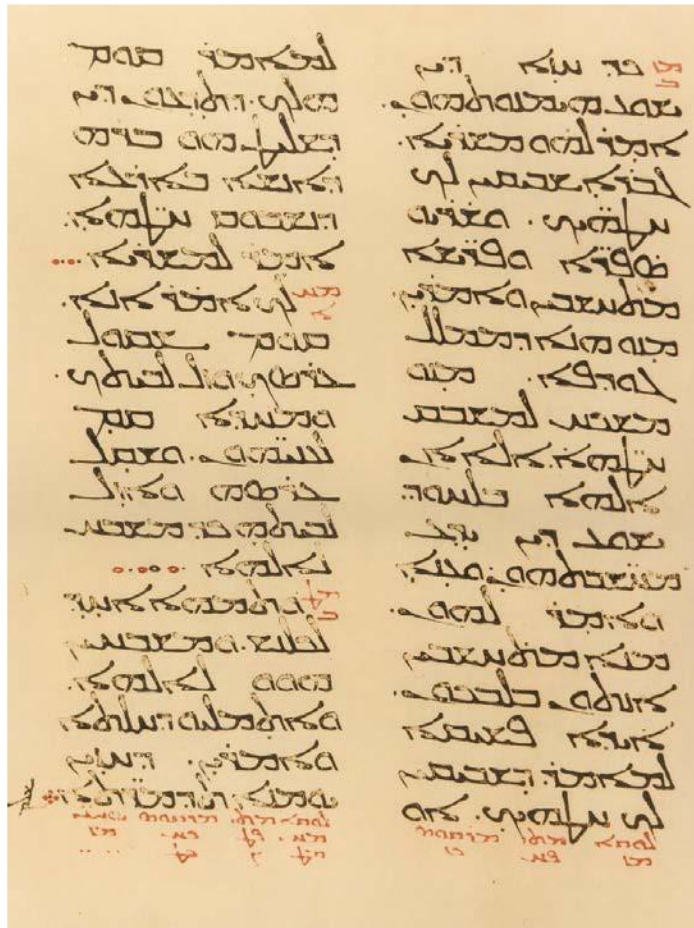 ܟܕ ܚܙܐ ܕܝܢ
ܝܫܘܥ ܗܝܡܢܘܬܗܘܢ.
ܐܡܪ ܠܗܘ ܡܫܪܝܐ.
ܓܒܪܐ ܫܒܝܩܝܢ ܠܟ
ܚܛܗ̈ܝܟ. ܘܫܪܝܘ
ܣܦܪ̈ܐ ܘܦܪ̈ܝܫܐ
ܡܬܚܫܒܝܢ ܘܐܡܪܝܢ.
ܡܢܘ ܗܢܐ ܕܡܡܠܠ
ܓܘܕܦܐ. ܡܢܘ
ܡܫܟܚ ܠܡܫܒܩ
ܚܛܗ̈ܐ. ܐܠܐ ܐܢ
ܐܠܗܐ ܒܠܚܘܕ
ܝܫܘܥ ܕܝܢ ܝܕܥ
ܡܚܫ̈ܒܬܗܘܢ. ܘܥܢܐ
ܘܐܡܪ ܠܗܘܢ.
ܡܢܐ ܡܬܚܫܒܝܢ
ܐܢܬܘܢ ܒܠܒܟܘܢ.
ܐܝܕܐ ܦܫܝܩܐ
ܠܡܐܡܪ. ܕܫܒܝܩܝܢ
ܠܟ ܚܛܗ̈ܝܟ. ܐܘ
ܠܡܐܡܪ ܩܘܡ
ܗܠܟ. ܕܬܕܥܘܢ ܕܝܢ
ܕܫܠܝܛ ܗܘ ܒܪܗ
ܕܐܢܫܐ ܒܐܪܥܐ
ܕܢܫܒܘܩ ܚܛܗ̈ܐ.
ܐܡܪ ܠܡܫܪܝܐ.
ܠܟ ܐܡܪ ܐܢܐ.
ܩܘܡ ܫܩܘܠ
ܥܪܣܟ ܘܙܠ ܠܒܝܬܟ.
ܘܡܚܕܐ ܩܡ
ܠܥܝܢܝ̈ܗܘܢ. ܘܫܩܠ
ܥܪܣܗ ܘܐܙܠ
ܠܒܝܬܗ ܟܕ ܡܫܒܚ
ܠܐܠܗܐ
ܘܬܡܗܐ ܐܚܕ
ܠܟܠܢܫ. ܘܡܫܒܚܝܢ
ܗܘܘ ܠܐܠܗܐ.
ܘܐܬܡܠܝܘ ܕܚܠܬܐ
ܘܐܡܪܝܢ. ܕܚܙܝܢ
ܝܘܡܢܐ ܬܕܡܪ̈ܬܐ